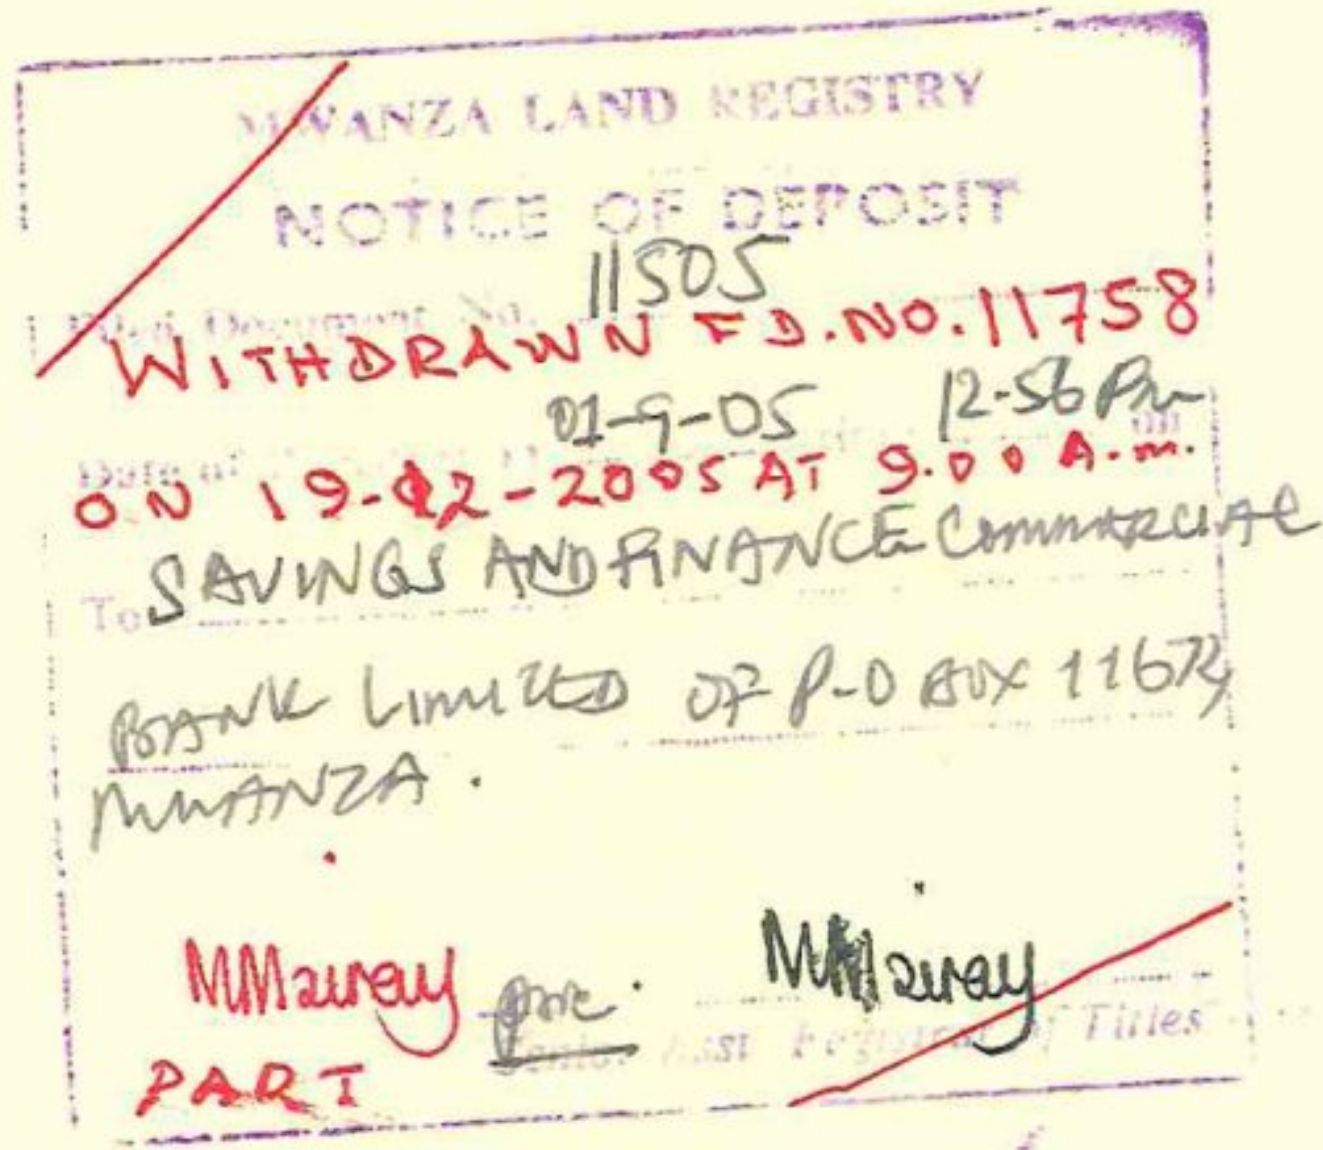 MWANZA LAND REGISTRY
NOTICE OF DEPOSIT
Filed Document No. 11505
WITHDRAWN F D. NO. 11758
Date of 01-9-05 12-56 Pm
ON 19-12-2005 AT 9.00 A.m.
To SAVINGS AND FINANCE COMMARCIAL
BANK LIMITED OF P-O BOX
MWANZA.
Asst Registrar of Titles
PART